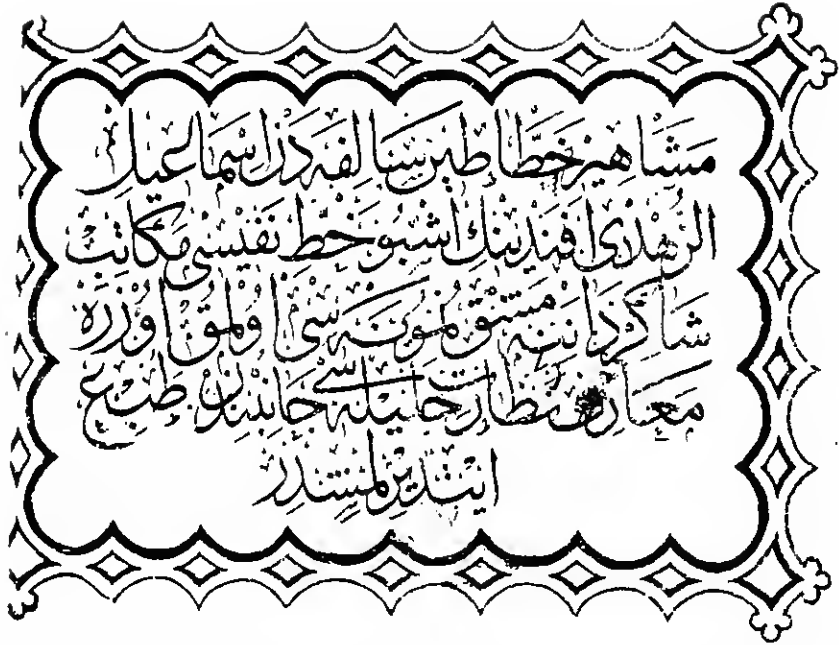 مشاهير خطاطين سالفه دن اسماعيل
الزهدى افندينك اشبو خط نفيسى مكاتب
شاكردانه مشق نمونه سى اولمق اوزره
معارف نظارت جليله سى جانبندن طبع
ايتديرلمشدر